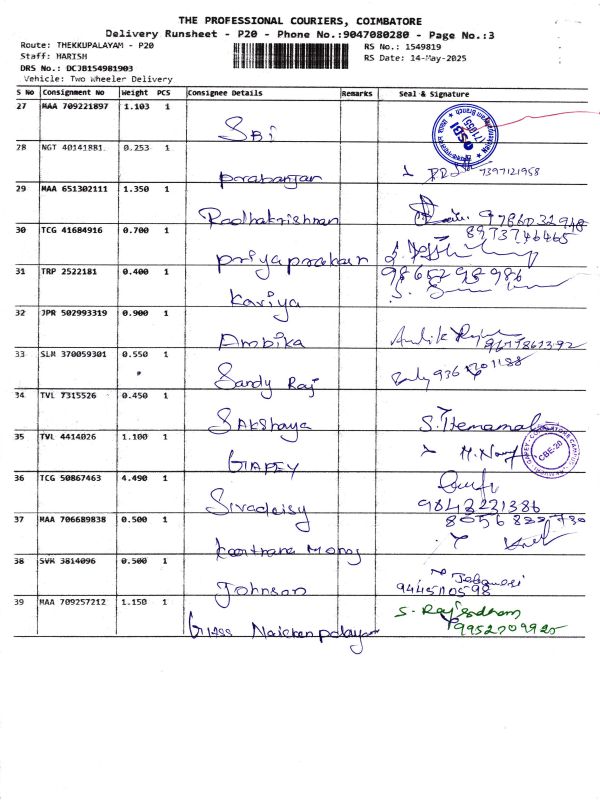 THE PROFESSIONAL COURIERS, COIMBATORE
Delivery Runsheet - P20 - Phone No.:9047080280 - Page No.:3
Route: THEKKUPALAYAM - P20
RS No.: 1549819
Staff: HARISH
RS Date: 14-May-2025
DRS No.: DCJB154981903
Vehicle: Two Wheeler Delivery
S No Consignment No Weight PCS Consignee Details Remarks Seal & Signature
27 MAA 709221897 1.103 1
SBi
28 NGT 401418813 0.253 1
prabanjan 7397121958
29 MAA 651302111 1.350 1
Radhakrishnan
30 TCG 41684916 0.700 1 8973746465
priyaprakash
31 TRP 2522181 0.400 1 9865298986
Kaviya
32 JPR 502993319 0.900 1
Ambika
33 SLM 370059301 0.550 1
Sandy Raj
34 TVL 7315526 0.450 1
SAkshaya S. Hemamal
35 TVL 4414026 1.100 1
GAPEY
CBE-20
36 TCG 50867463 4.490 1
Sivadeisy 9843231386
37 MAA 706689838 0.500 1
38 SVM 3814096 0.500 1
Johnson 9445110598
39 MAA 709257212 1.150 1
9952709925